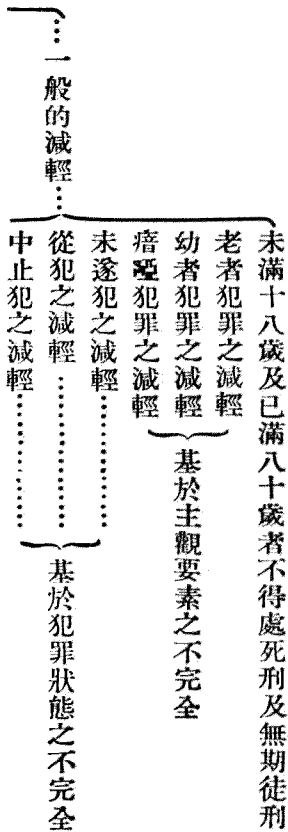 一般的減輕
未滿十八歲及已滿八十歲者不得處死刑及無期徒刑
老者犯罪之減輕
幼者犯罪之減輕
瘖啞犯罪之減輕
基於主觀要素之不完全
未遂犯之減輕
從犯之減輕
中止犯之減輕
基於犯罪狀態之不完全